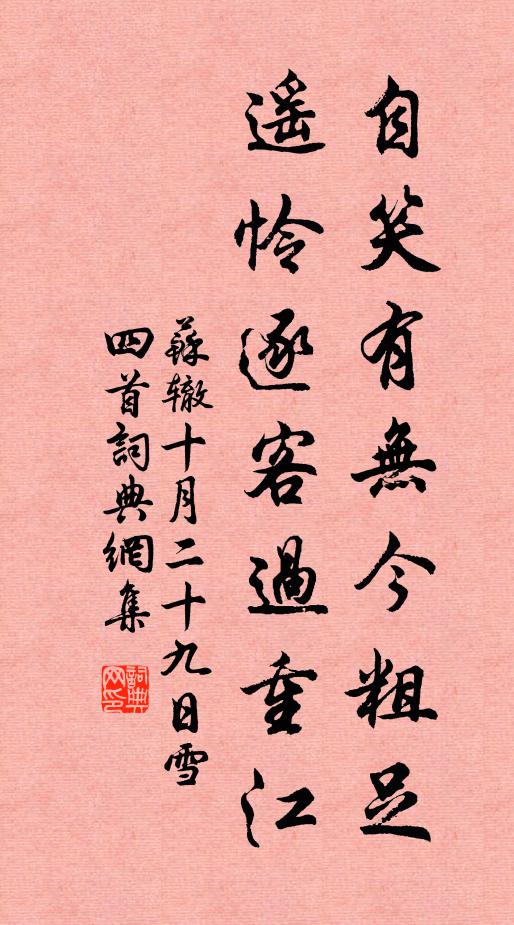 自笑有無今粗足
遥怜逐客過重江
蘇辙十月二十九日雪
四首詞典網集
詞典
网印